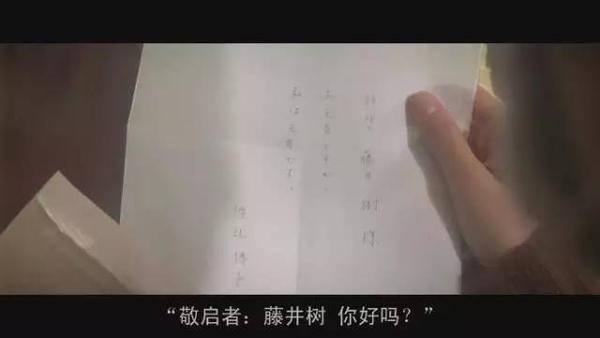 拝啓、藤井 樹 様
お元気ですか。
私は元気です。
渡辺博子
“敬启者：藤井树 你好吗？”